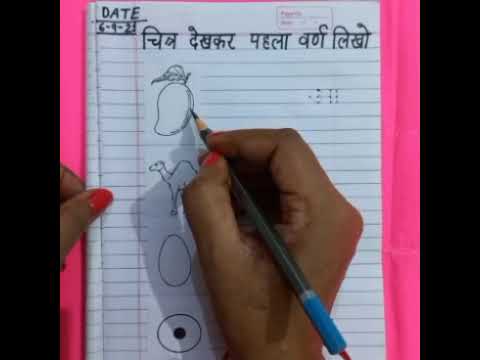 DATE
6-9-21
चित्र देखकर पहला वर्ण लिखो
आ